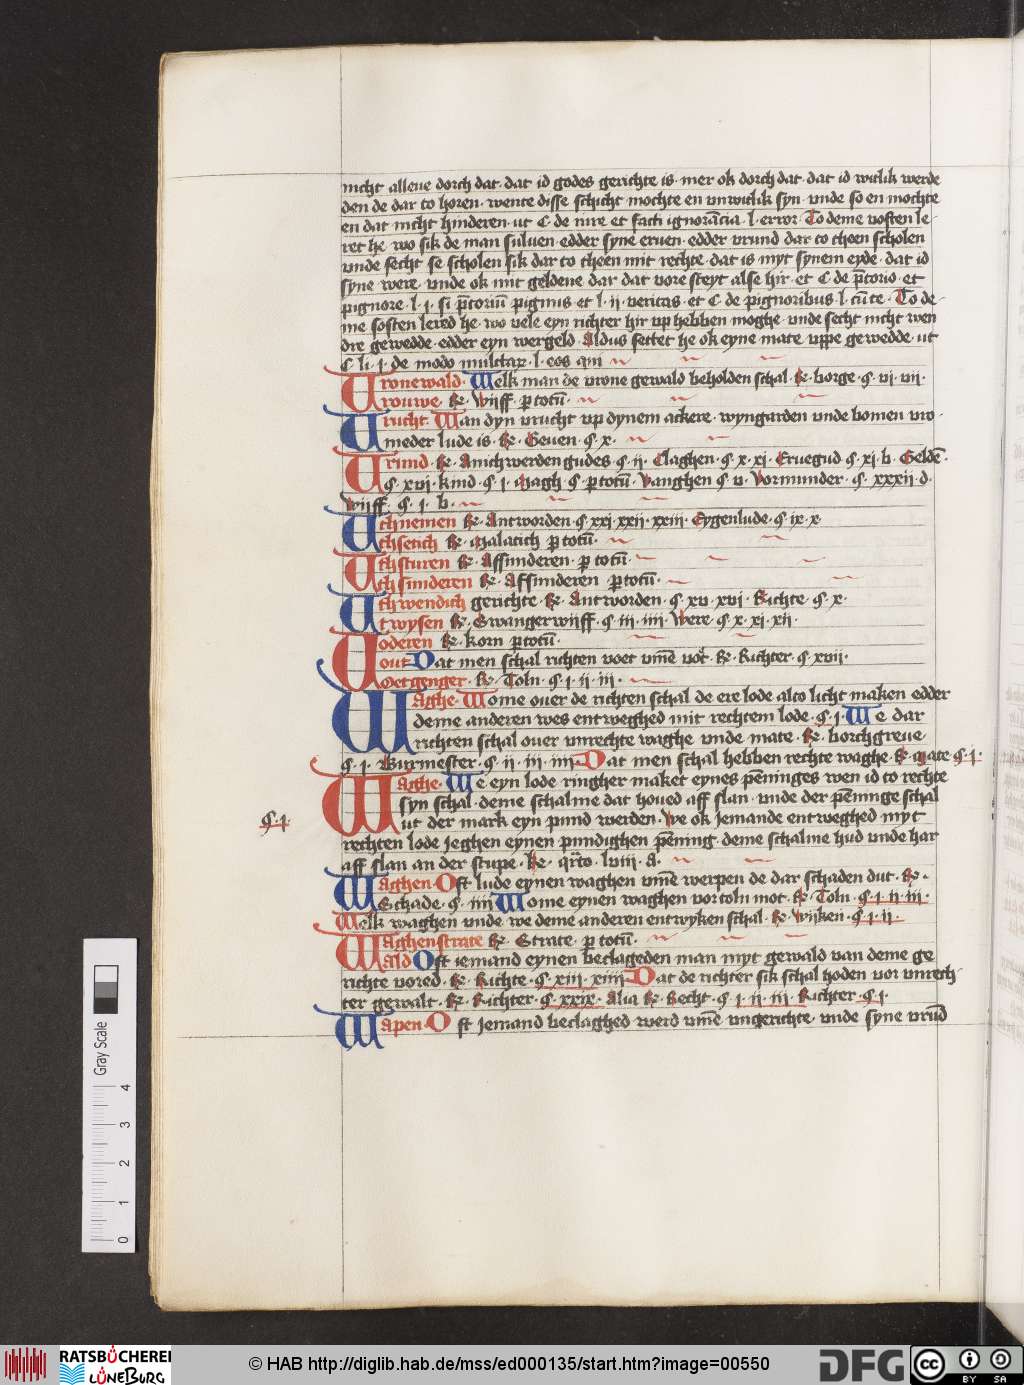 nicht allene dorch dat· dat id godes gerichte is· mer ok dorch dat· dat id witlik werde
den de dar to horen· wente disse schicht mochte en vnwitlik syn· vnde so en mochte
en dat nicht hinderen· ut C de iure et facti ignorācia· l· error· To deme voften le
ret he· wo sik de man suluen· edder syne eruen· edder vrund dar to theen scholen
vnde secht se scholen sik dar to theen mit rechte· dat is myt synem eyde· dat id
syne were· vnde ok mit geldene dar dat vore steyt alse hir· et C de p̄torio· et
pignore· l· i· si p̄toriū pignus et l· ii· veritas· et C de pignoribus l· cū te· To de-
me sosten lered he· wo vele eyn richter hir vp hebben moghe· vnde secht nicht wen
dre gewedde· edder eyn wergeld· Aldus settet he ok eyne mate vppe gewedde· ut
C li· i· de modo multar̄· l· eos qui
Vronewald· Welk man de vrone gewald beholden schal· R̄· borge· ꝯ· vi· vii·
Vrouwe· R̄· Wiiff· p totū·
Vrucht· Wan dyn vrucht vp dynem ackere· wyngarden vnde bomen vro-
meder lude is· R̄· Geuen· ꝯ· x·
Vrund· R̄· Anichwerdengudes· ꝯ· ii· Claghen· ꝯ· x· xi· Eruegud ꝯ· xi· b· Geldē·
ꝯ· xvi· kind· ꝯ· i· Magh ꝯ· p totū· Vanghen ꝯ· v· Vormunder· ꝯ· xxxii· d·
Wiiff· ꝯ· i· b·
Vthnemen R̄· Antworden· ꝯ· xxi· xxii· xxiii· Eygenlude· ꝯ· ix· x·
Vthsetich R̄· Malatich p totū·
Vthsturen R̄· Affsunderen· p totū·
Vthsunderen R̄· Affsunderen p totū·
Vthwendich gerichte· R̄· Antworden· ꝯ· xv· xvi· Richte· ꝯ· x·
Vtwysen R̄· Swangerwiiff· ꝯ· iii· iiii· Were· ꝯ· x· xi· xii·
Voderen R̄· korn p totū·
Vout Dat men schal richten voet vm̄e vot· R̄· Richter· ꝯ· xvii·
Voetgenger· R̄· Toln· ꝯ· i· ii· iii·
Waghe· Wome ouer de richten schal de ere lode alto licht maken edder
deme anderen wes entweghed mit rechtem lode· ꝯ· i· We dar
richten schal ouer vnrechte waghe vnde mate· R̄· borchgreue
ꝯ· i· Burmester· ꝯ· ii· iii· iiii· Dat men schal hebben rechte waghe· R̄· Mate ꝯ· i·
Waghe· We eyn lode ringher maket eynes pēninges wen id to rechte
syn schal· deme schalme dat houed aff slan· vnde der pēninge schal
ut der mark eyn pund werden· We ok iemande entweghed myt
ꝯ· i·
rechten lode ieghen eynen pundighen pēning· deme schalme hud vnde har
aff slan an der stupe· R̄· qrto· lviii· a·
Waghen· Oft lude eynen waghen vm̄e werpen de dar schaden dut· R̄·
Schade· ꝯ· iiii Wome eynen waghen vortoln mot· R̄· Toln· ꝯ· i· ii· iii·
Welk waghen vnde we deme anderen entwyken schal· R̄· Wiiken· ꝯ· i· ii·
Waghenstrate R̄· Strate· p totū·
Wald Oft iemand eynen beclageden man myt gewald van deme ge
richte vored· R̄· Richte· ꝯ· xiii· xiiii· Dat de richter sik schal hoden vor vnrech-
ter gewalt· R̄· Richter· ꝯ· xxix· Alia R̄· Recht· ꝯ· i· ii· iii Richter· ꝯ· i·
Wapen· Oft iemand beclaghed werd vm̄e vngerichte· vnde syne vrūd
Gray Scale
0 1 2 3 4
RATSBÜCHEREI
LÜNEBURG
© HAB http://diglib.hab.de/mss/ed000135/start.htm?image=00550
DFG
cc BY SA